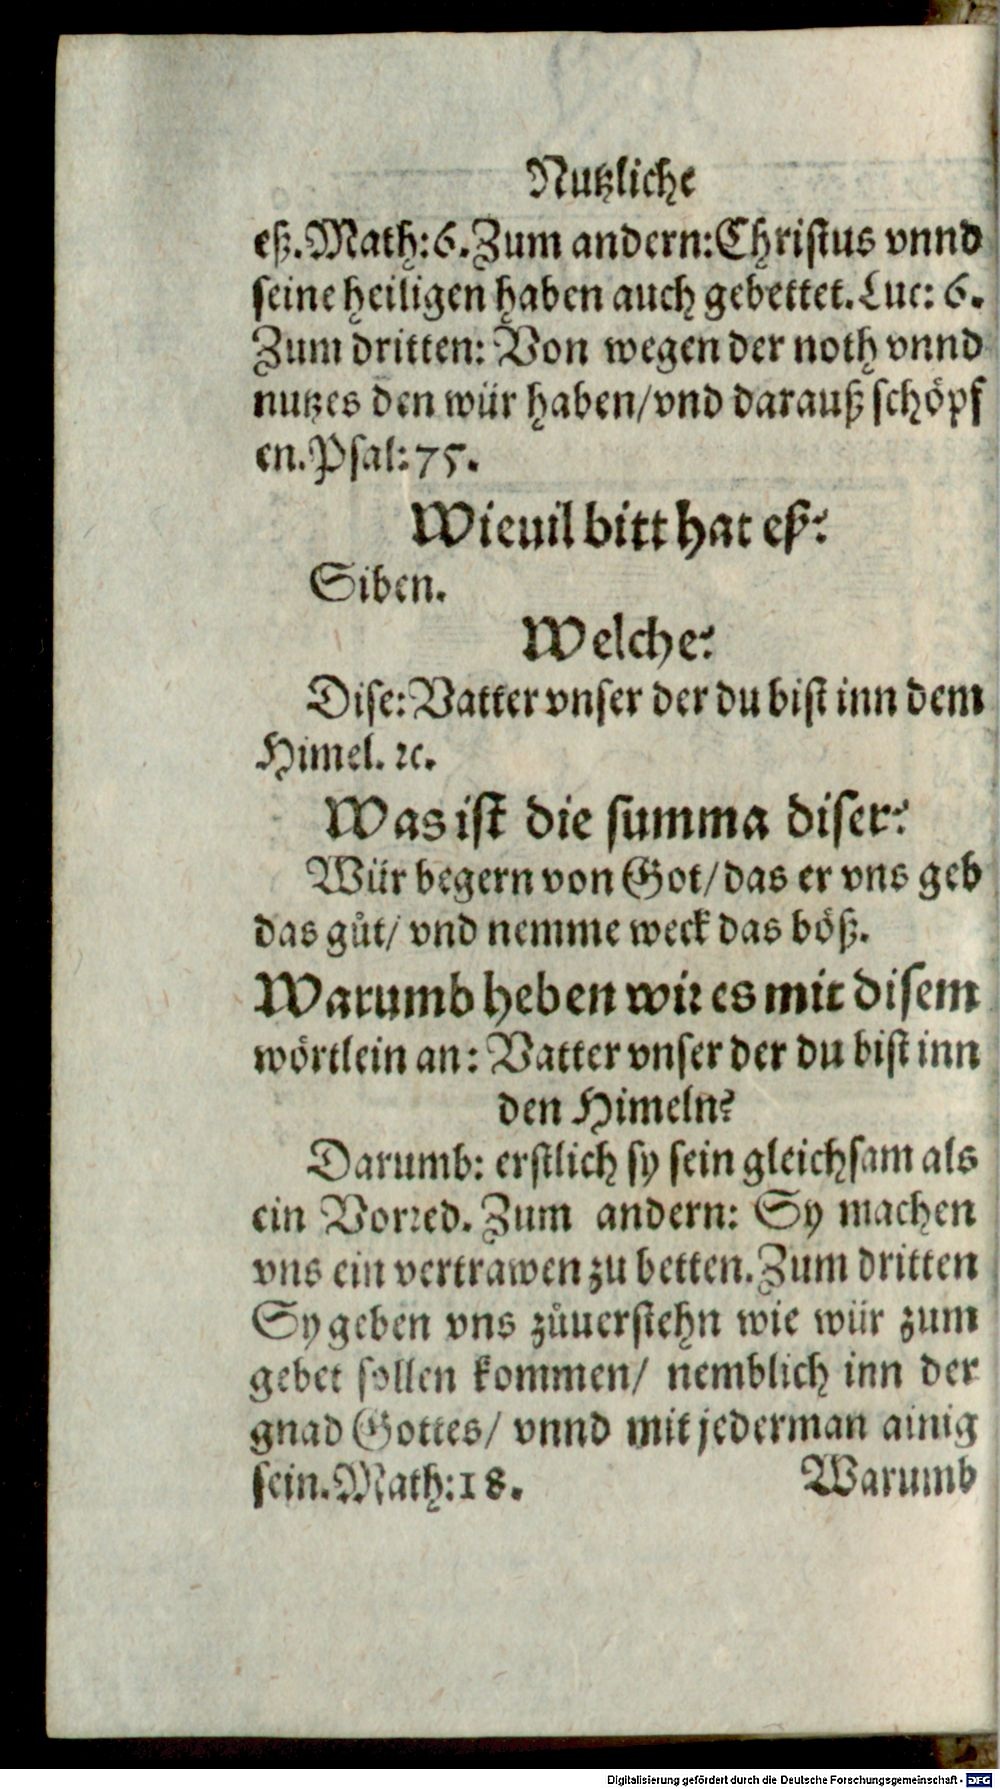 Nutzliche
eß. Math: 6. Zum andern: Christus vnnd
seine heiligen haben auch gebettet. Luc: 6.
Zum dritten: Von wegen der noth vnnd
nutzes den wür haben/ vnd darauß schöpf
en. Psal: 75.
Wieuil bitt hat eß?
Siben.
Welche?
Dise: Vatter vnser der du bist inn dem
Himel. ꝛc.
Was ist die summa diser?
Wür begern von Got/ das er vns geb
das gůt/ vnd nemme weck das böß.
Warumb heben wir es mit disem
wörtlein an: Vatter vnser der du bist inn
den Himeln?
Darumb: erstlich sy sein gleichsam als
ein Vorred. Zum andern: Sy machen
vns ein vertrawen zu betten. Zum dritten
Sy geben vns zůuerstehn wie wür zum
gebet sollen kommen/ nemblich inn der
gnad Gottes/ vnnd mit jederman ainig
sein. Math: 18. Warumb
Digitalisierung gefördert durch die Deutsche Forschungsgemeinschaft - DFG